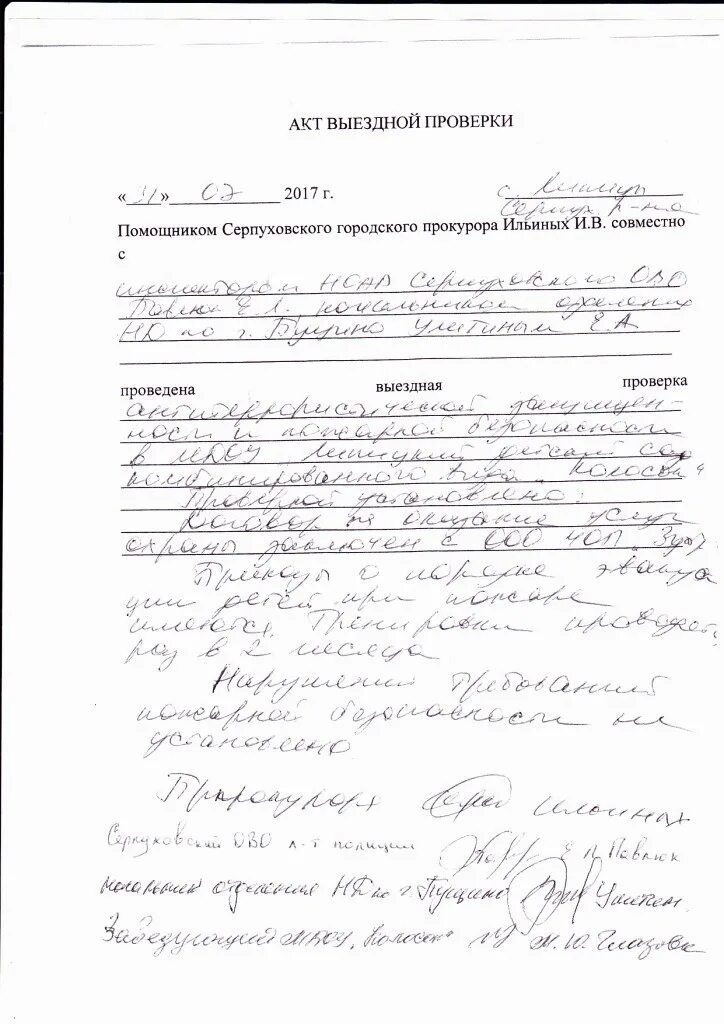 АКТ ВЫЕЗДНОЙ ПРОВЕРКИ
«31» 07 2017 г. с. Липицы
Серпух. р-на
Помощником Серпуховского городского прокурора Ильиных И.В. совместно
с
инспектором Серпуховского ОВО
Павлюк Е.Л., начальником отделения
НД по г. Пущино Е.А
проведена выездная проверка
антитеррористической защищен-
ности и пожарной безопасности
в МКОУ Липицкий детский сад
комбинированного вида „Колосок“
Проверкой установлено:
Договор на оказание услуг
охраны заключен с ООО ЧОП
Приказы о порядке эвакуа
ции детей при пожаре
имеются. Тренировки проводят
раз в 2 месяца
Нарушений требований
пожарной безопасности не
установлено
Ильиных
Серпуховский ОВО л-т полиции Е Л Павлюк
начальник отделения НД по г. Пущино
Заведующий МКОУ „Колосок“ М.Ю. Глазова